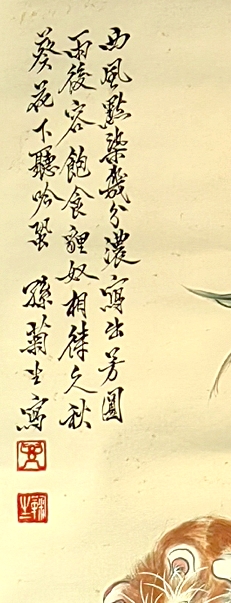 西風點染幾分濃寫出芳園
雨後容飽食貍奴相待久秋
葵花下聽吟蛩 孫菊生寫